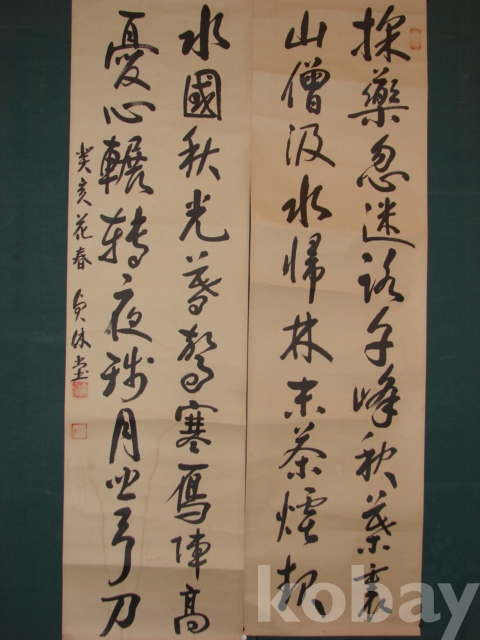 採藥忽迷路千峰秋葉裏
山僧汲水歸林末茶煙起
水國秋光暮驚寒雁陣高
憂心輾轉夜殘月照弓刀
癸亥花春 貞休堂
kobay